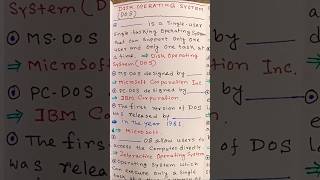 DISK OPERATING SYSTEM
(DOS)
① ______ is a Single-user
Single-tasking Operating System
that can support only one
user and only one task at
a time.
→ Disk Operating
System (DOS)
② MS-DOS designed by ____
→ Microsoft Corporation Inc.
③ PC-DOS designed by ____
→ IBM Corporation
④ The first version of DOS
was released by ____
→ in the year 1981
→ Microsoft.
____ OS allow users to
access the Computer directly
→ Interactive Operating System
Operating System which
can execute only a Single
MS-DOS
Micro
PC-DOS
IBM C
The first
was
System
by
tion Inc.
by
of DOS